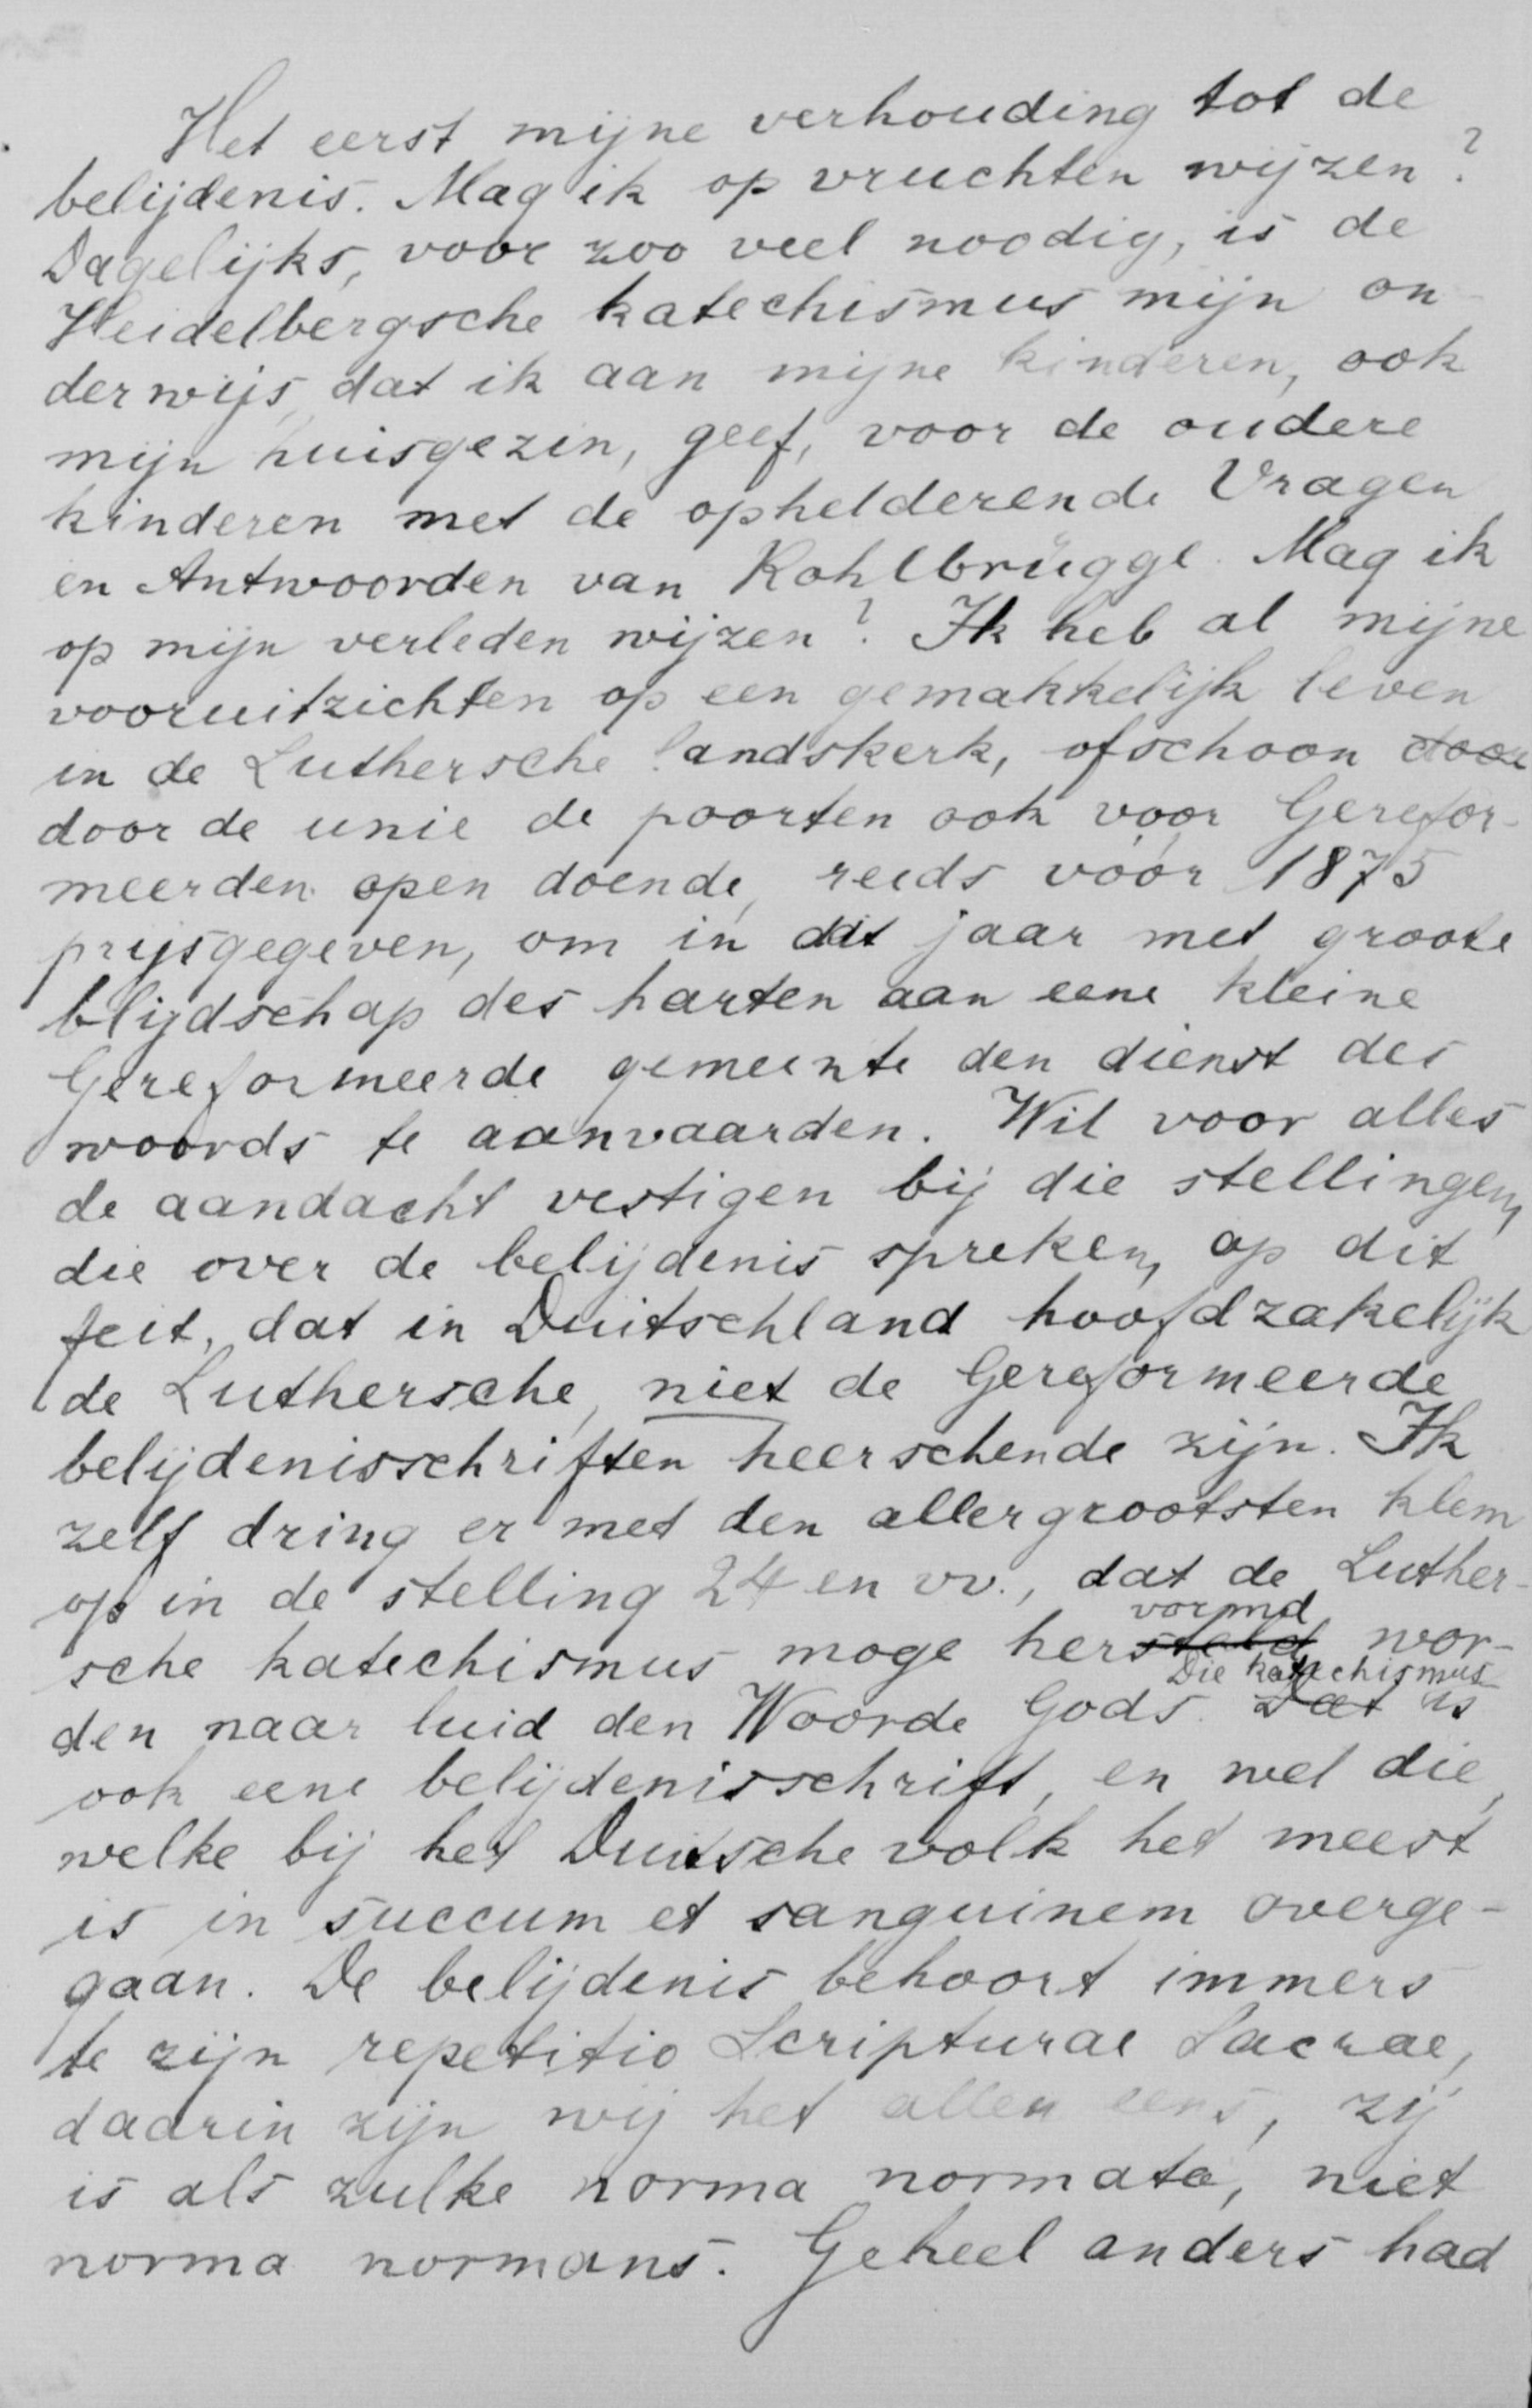 Het eerst mijne verhouding tot de
belijdenis. Mag ik op vruchten wijzen?
Dagelijks, voor zoo veel noodig, is de
Heidelbergsche katechismus mijn on-
derwijs, dat ik aan mijne kinderen, ook
mijn huisgezin, geef, voor de oudere
kinderen met de ophelderende Vragen
en Antwoorden van Kohlbrügge. Mag ik
op mijn verleden wijzen? Ik heb al mijne
vooruitzichten op een gemakkelijk leven
in de Luthersche landskerk, ofschoon door
door de unie de poorten ook voor Gerefor-
meerden open doende, reeds vóór 1875
prijsgegeven, om in dit jaar met groote
blijdschap des harten aan eene kleine
Gereformeerde gemeente den dienst des
woords te aanvaarden. Wil voor alles
de aandacht vestigen bij die stellingen,
die over de belijdenis spreken, op dit
feit, dat in Duitschland hoofdzakelijk
de Luthersche, niet de Gereformeerde
belijdenisschriften heerschende zijn. Ik
zelf dring er met den allergrootsten klem
op in de stelling 24 en vv., dat de Luther-
vormd
sche katechismus moge hersteld wor-
Die katechismus
den naar luid den Woorde Gods. Dat is
ook eene belijdenisschrift, en wel die,
welke bij het Duitsche volk het meest
is in succum et sanguinem overge-
gaan. De belijdenis behoort immers
te zijn repetitio Scripturae Sacrae,
daarin zijn wij het allen eens, zij
is als zulke norma normata, niet
norma normans. Geheel anders had